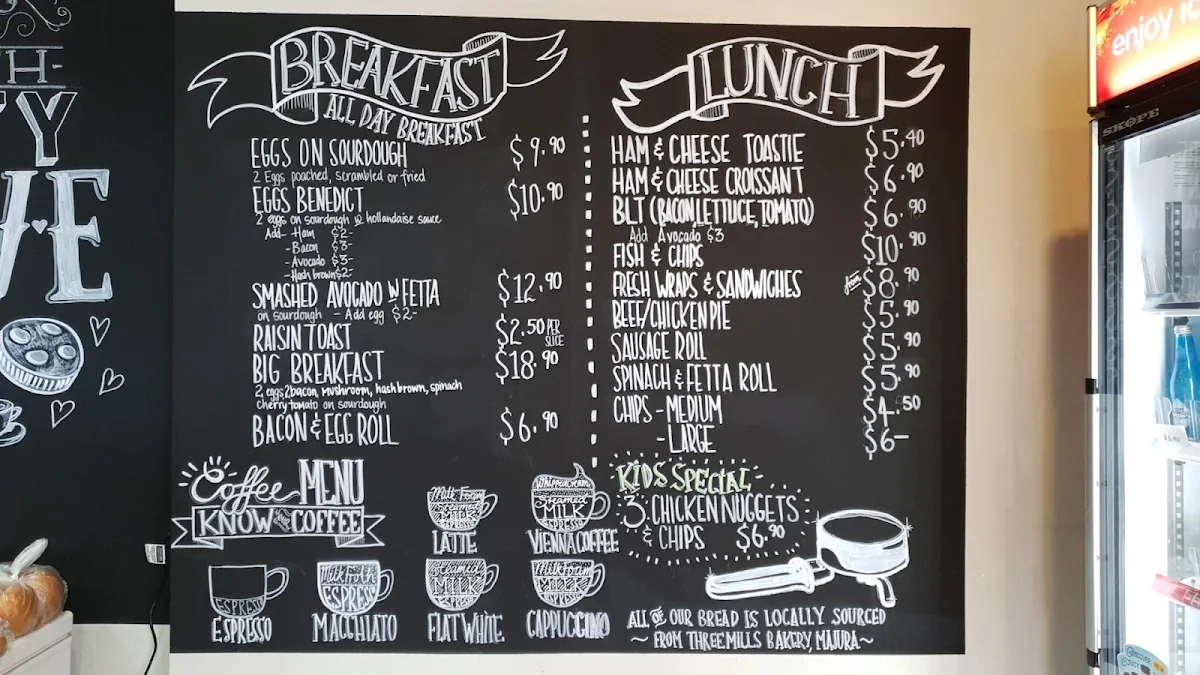 TH-
TY
VE
BREAKFAST
ALL DAY BREAKFAST
EGGS ON SOURDOUGH $9.90
2 Eggs poached, scrambled or fried
EGGS BENEDICT $10.90
2 eggs on sourdough w hollandaise sauce
Add- Ham $2-
- Bacon $3-
- Avocado $3-
- Hash brown $2-
SMASHED AVOCADO W FETTA $12.90
on sourdough - Add egg $2-
RAISIN TOAST $2.50 PER SLICE
BIG BREAKFAST $18.90
2 eggs 2 bacon, mushroom, hash brown, spinach
cherry tomato on sourdough
BACON & EGG ROLL $6.90
LUNCH
HAM & CHEESE TOASTIE $5.40
HAM & CHEESE CROISSANT $6.90
BLT (BACON, LETTUCE, TOMATO) $6.90
Add Avocado $3
FISH & CHIPS $10.90
FRESH WRAPS & SANDWICHES from $8.90
BEEF/CHICKEN PIE $5.90
SAUSAGE ROLL $5.90
SPINACH & FETTA ROLL $5.90
CHIPS - MEDIUM $4.50
- LARGE $6-
KIDS SPECIAL
3 CHICKEN NUGGETS
& CHIPS $6.90
Coffee MENU
KNOW your COFFEE
Milk Foam
Steamed
MILK
ESPRESSO
LATTE
Whipped cream
Steamed
MILK
ESPRESSO
VIENNA COFFEE
ESPRESSO
ESPRESSO
Milk Froth
ESPRESSO
MACCHIATO
Steamed
MILK
ESPRESSO
FLAT WHITE
Milk Foam
MILK
ESPRESSO
CAPPUCCINO
ALL OF OUR BREAD IS LOCALLY SOURCED
~ FROM THREEMILLS BAKERY, MAJURA ~
enjoy
SKOPE